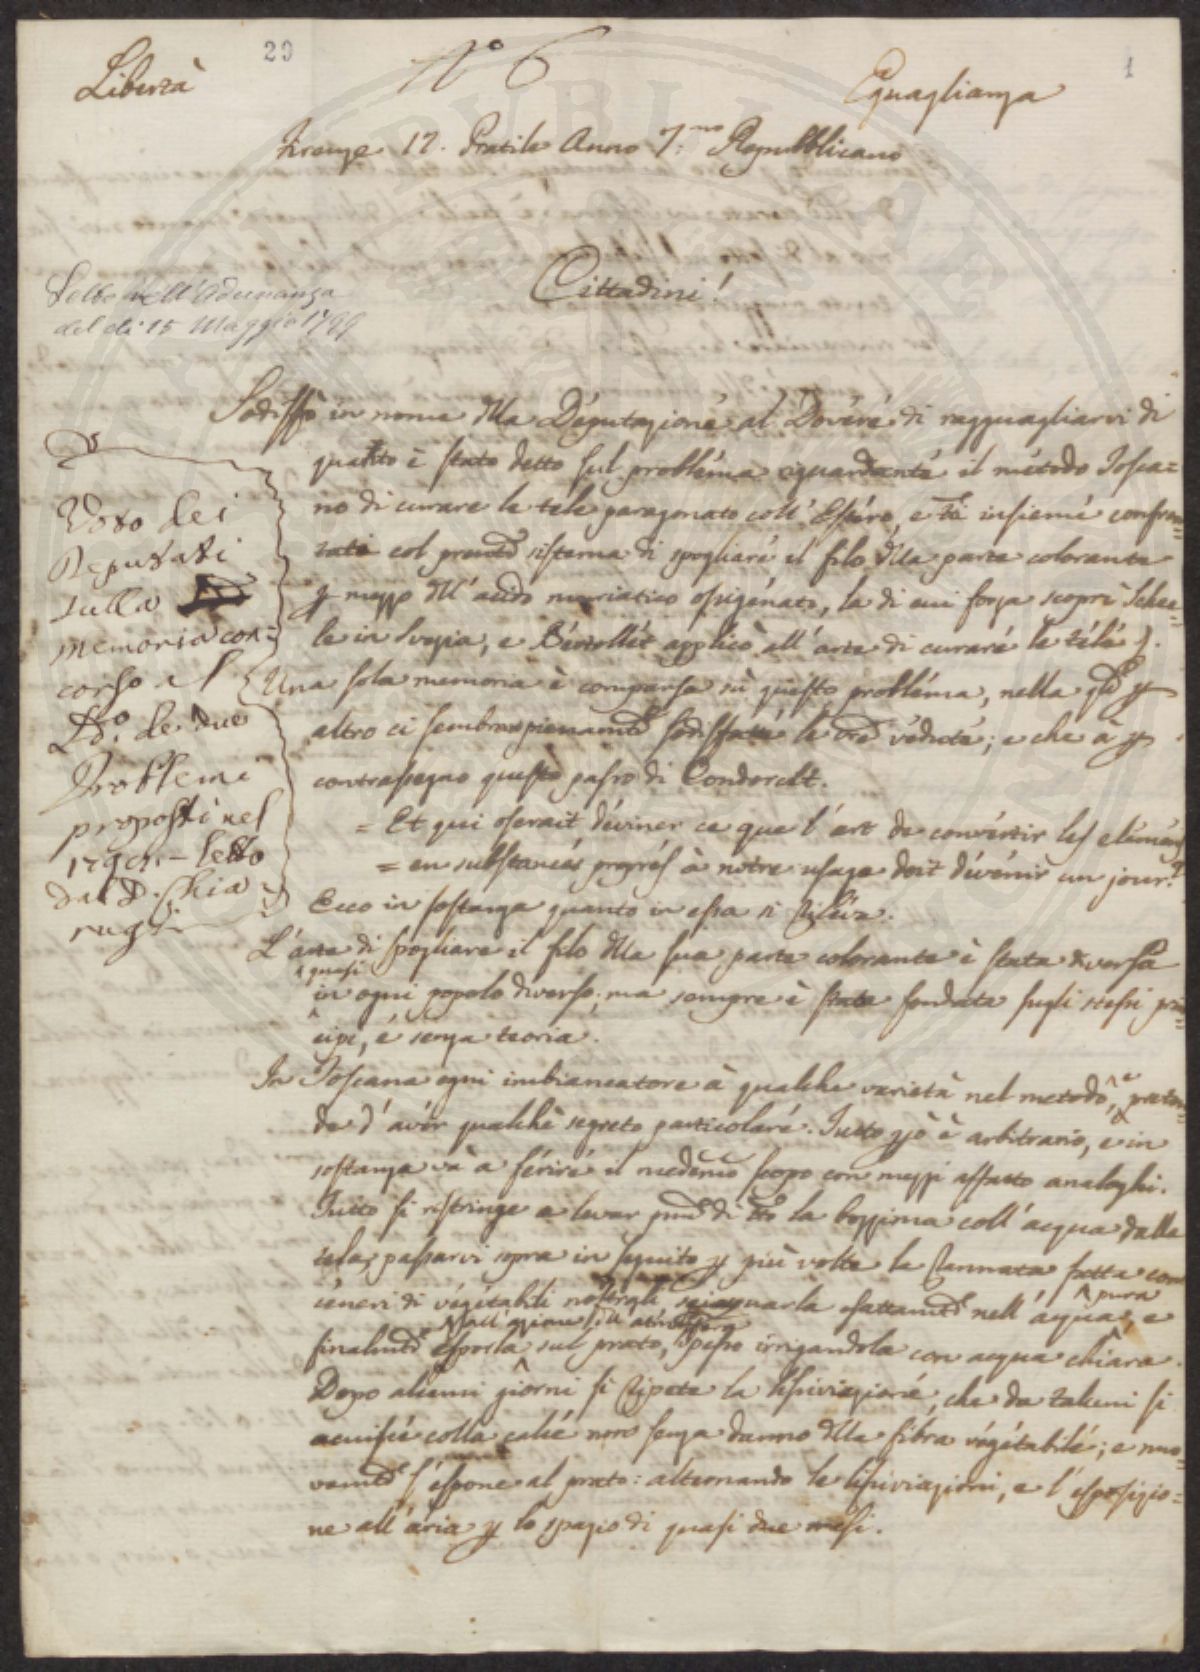 29
1
Libertà
N.° 6
Eguaglianza
Firenze 12. Pratile Anno 7.mo Repubblicano
Cittadini!
Letto nell'Adunanza
del dì 15 Maggio 1799
Voto dei
Deputati
sulla
memoria con=
corsa al
Po. de due
Problemi
proposti nel
letto
dal D. Chia
rugi
Sodisfò in nome dlla Deputazione al Dovere di ragguagliarvi di
quanto è stato detto sul problema riguardante il metodo Tosca=
no di curare le tele paragonato coll' Estero, e insieme confron=
tato col sistema di spogliare il filo dlla parte colorante
p mezzo dll' acido muriatico ossigenato, la di cui forza scoprì Schee=
le in Svezia, e Bertollet applicò all' arte di curare le tele).
Una sola memoria è comparsa sù questo problema, nella p
altro ci sembran pienamte sodisfatte le vedute; e che à p
contrassegno questo passo di Condorcet.
= Et qui oserait déviner ce que l'art de convertir les elémens
= en substances propres à notre usage doit dévénir un jour?
Ecco in sostanza quanto in essa si rileva.
L'arte di spogliare il filo dlla sua parte colorante è stata diversa
quasi
in ogni popolo diverso; ma sempre è stata fondata sugli stessi prin=
cipi, e senza teoria.
In Toscana ogni imbiancatore à qualche varietà nel metodo, e preten=
de d' aver qualchè segreto particolare. Tutto è arbitrario, e in
sostanza và a ferire il medemo scopo con mezzi affatto analoghi.
Tutto si ristringe a levar di la bozzima coll' acqua dalle
tela, passarvi sopra in seguito p più volte la rannata fatta con
ceneri di végétabili sciaquarla esattamte nell' acqua pura, e
all'azione dll'
finalmte esporla sul prato, spesso irrigandola con acqua chiara.
Dopo alcuni giorni si ripete la lisciviazione, che da taluni si
acuisce colla calce non senza danno dlla fibra végétabile; e nuo
vamte s'espone al prato: alternando le lisciviazioni, e l'esposizio=
ne all'aria p lo spazio di quasi due mesi.